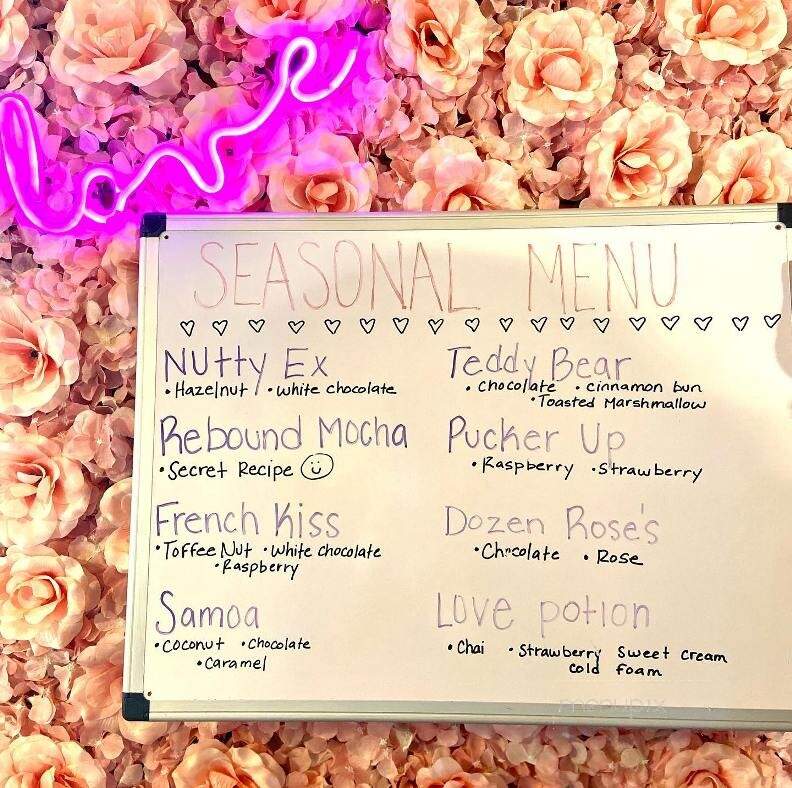 love
SEASONAL MENU
Nutty Ex
• Hazelnut • white chocolate
Rebound Mocha
• Secret Recipe
French Kiss
• Toffee Nut • white chocolate
• Raspberry
Samoa
• coconut • chocolate
• caramel
Teddy Bear
• chocolate • cinnamon bun
• Toasted Marshmallow
Pucker Up
• Raspberry • Strawberry
Dozen Rose's
• Chocolate • Rose
Love potion
• Chai • Strawberry Sweet Cream
cold foam
menupix